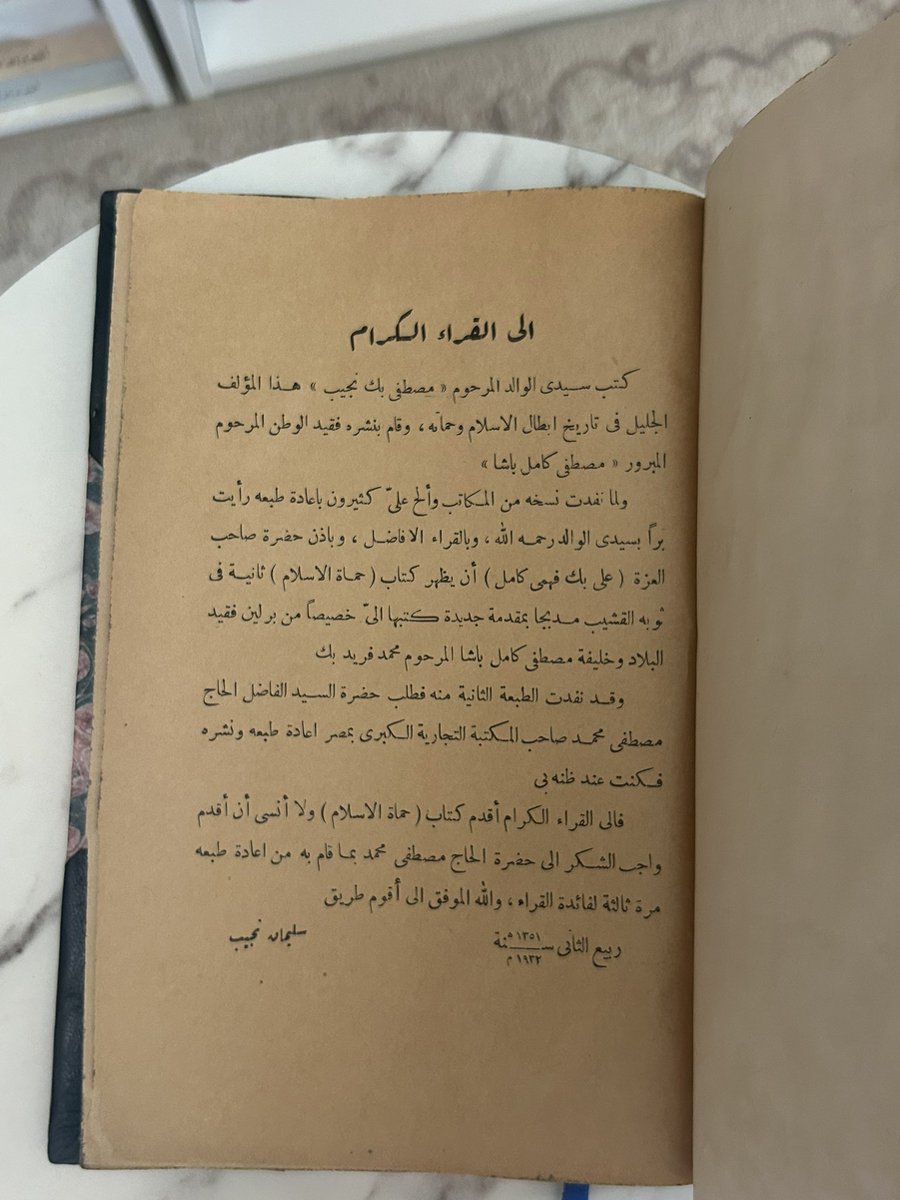 الى القراء الكرام
كتب سيدى الوالد المرحوم « مصطفى بك نجيب » هذا المؤلف
الجليل فى تاريخ ابطال الاسلام وحماته ، وقام بنشره فقيد الوطن المرحوم
المبرور « مصطفى كامل باشا »
ولما نفدت نسخه من المكاتب وألح علىّ كثيرون باعادة طبعه رأيت
براً بسيدى الوالد رحمه الله ، وبالقراء الافاضل ، وباذن حضرة صاحب
العزة ( على بك فهمى كامل ) أن يظهر كتاب ( حماة الاسلام ) ثانية فى
ثوبه القشيب مدبجا بمقدمة جديدة كتبها الىّ خصيصاً من برلين فقيد
البلاد وخليفة مصطفى كامل باشا المرحوم محمد فريد بك
وقد نفدت الطبعة الثانية منه فطلب حضرة السيد الفاضل الحاج
مصطفى محمد صاحب المكتبة التجارية الكبرى بمصر اعادة طبعه ونشره
فكنت عند ظنه بى
فالى القراء الكرام أقدم كتاب ( حماة الاسلام ) ولا أنسى أن أقدم
واجب الشكر الى حضرة الحاج مصطفى محمد بما قام به من اعادة طبعه
مرة ثالثة لفائدة القراء ، والله الموفق الى أقوم طريق
ربيع الثانى سنة ١٣٥١ هـ
١٩٣٢ م
سليمان نجيب